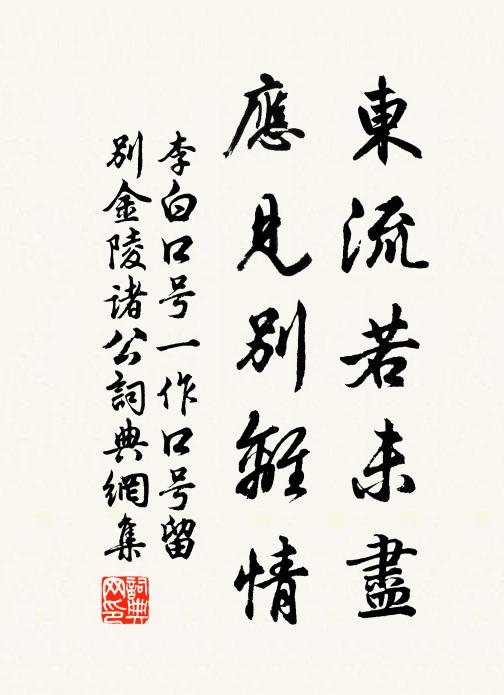 東流若未盡
應見別離情
李白口号一作口号留
別金陵诸公詞典網集
詞典网印